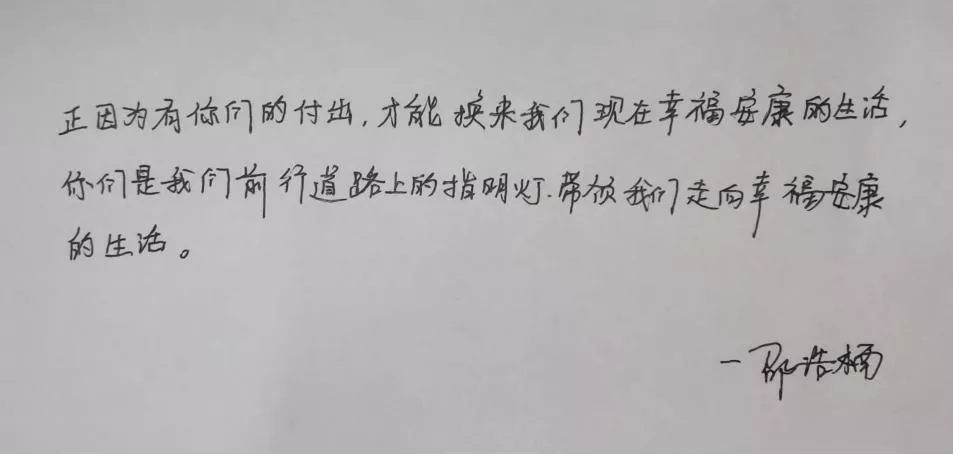 正因为有你们的付出,才能换来我们现在幸福安康的生活,
你们是我们前行道路上的指明灯.带领我们走向幸福安康
的生活。
—邵浩楠